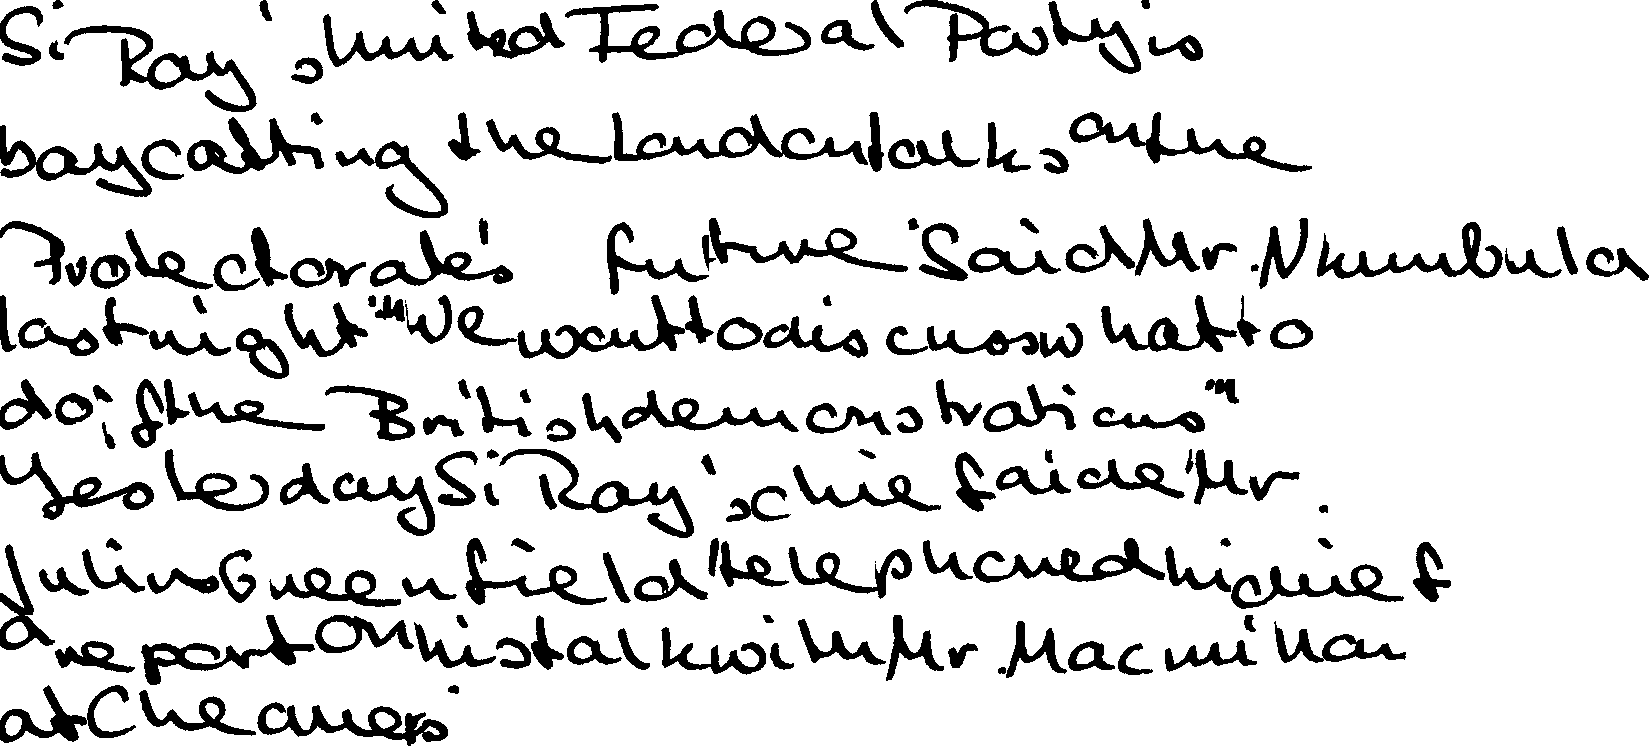 Si Ray's United Federal Party is
boycotting the London talks on the
Protectorate's future Said Mr. Nkumbula
last night "We want to discuss what to
do if the British demonstrations"
Yesterday Si Ray's chief aide Mr.
Julius Greenfield telephoned hi chief
a report on his talk with Mr. Macmillan
at Chequers